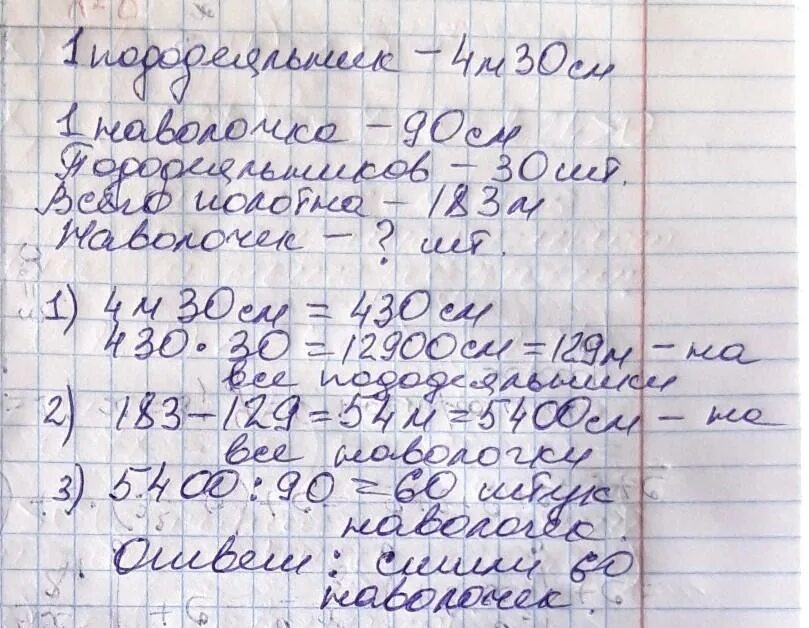 1 пододеяльник - 4м 30см
1 наволочка - 90см
Пододеяльников - 30 шт.
Всего полотна - 183м
Наволочек - ? шт.
1) 4м 30см = 430см
430 · 30 = 12900см = 129м - на
все пододеяльники
2) 183 - 129 = 54м = 5400см - на
все наволочки
3) 5400 : 90 = 60 штук
наволочек.
Ответ: сшили 60
наволочек.